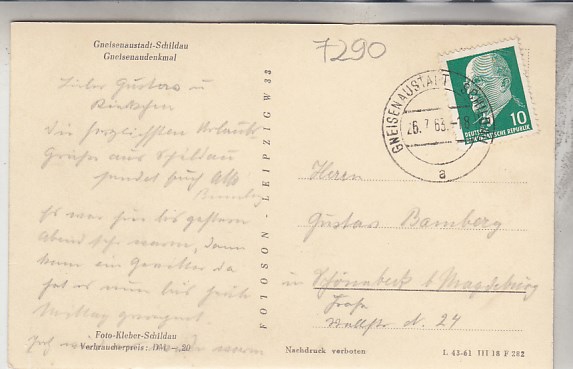 Gneisenaustadt-Schildau
Gneisenaudenkmal
7290
Lieber Gustav u
die herzlichsten Urlaubs
Grüße aus Schildau
sendet Euch
Es war hier bis gestern
Abend sehr warm, dann
kam ein Gewitter da
hat es nun bis heute
Mittag geregnet.
warm
Foto-Kleber-Schildau
Verbraucherpreis: DM –.20
FOTOSON - LEIPZIG W 33
GNEISENAUSTADT SCHILDAU
26.7.63.-18
a
10
DEUTSCHE DEMOKRATISCHE REPUBLIK
Herrn
Gustav Bamberg
in Schönebeck b/Magdeburg
Wallstr. N. 24
Nachdruck verboten
L 43-61 III 18 F 282